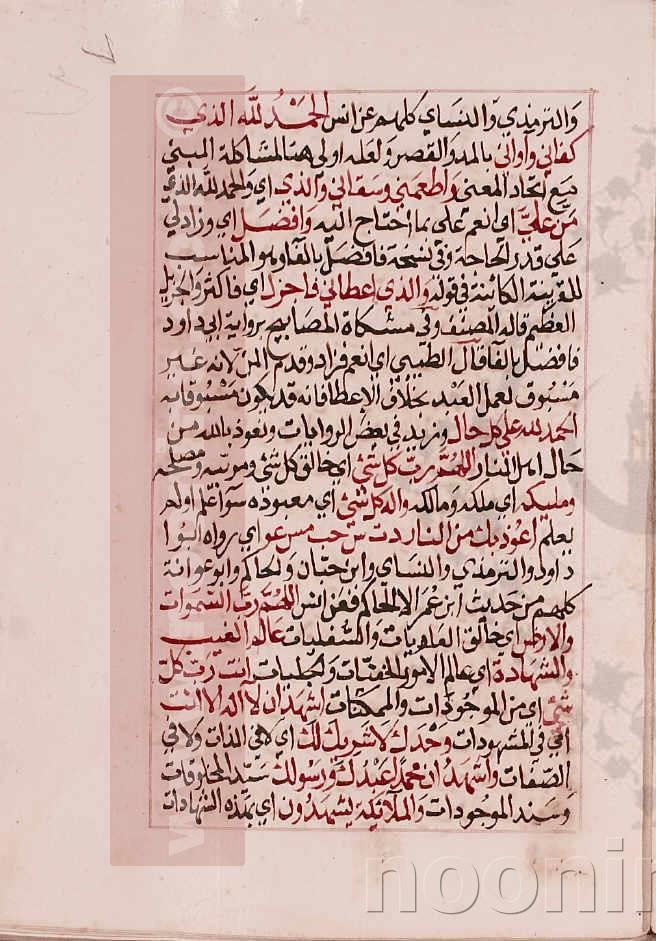 والترمذي والنساي كلهم عن انس الحمد لله الذي
كفاني وآواني بالمد والقصر ولعله اولى هنا لمشاكلة المبنى
تبع اتحاد المعنى واطعمني وسقاني والذي اي والحمد لله الذي
منّ عليّ اي انعم على بما احتاج اليه وافضل اي وزاد لي
على قدر الحاجة وفي نسخة فافضل بالفا وهو المناسب
للقرينة الكائنة في قوله والذي اعطاني فاجزل اي فاكثر والجزيل
العظيم قاله المصنف وفي مشكاة المصابيح برواية ابي داود
فافضل بالفا قال الطيبي اي انعم فزاد وقدم المن لانه غير
مسبوق لعمل العبد بخلاف الاعطا فانه قد يكون مسبوقا به
الحمد لله على كل حال وزيد في بعض الروايات ونعوذ بالله من
حال اهل النار اللهم رب كل شئ اي خالق كل شئ ومربيه ومصلحه
ومليكه اي ملكه ومالكه واله كل شئ اي معبوده سوآ علم اولم
يعلم اعوذ بك من النار د ت س حب مس عو اي رواه ابوا
داود والترمذي والنساي وابن حبان والحاكم وابو عوانة
كلهم من حديث ابن عمر الا الحاكم فعن انس اللهم رب السموات
والارض اي خالق العلويات والسفليات عالم الغيب
والشهادة اي عالم الامور الخفيات والجليات انت رب كل
شئ اي من الموجودات والممكنات اشهد ان لا اله الا انت
اي في المشهودات وحدك لا شريك لك اي لا في الذات ولا في
الصفات واشهد ان محمدا عبدك ورسولك سيد المخلوقات
وسند الموجودات والملآئكة يشهدون اي بهذه الشهادات
noonin